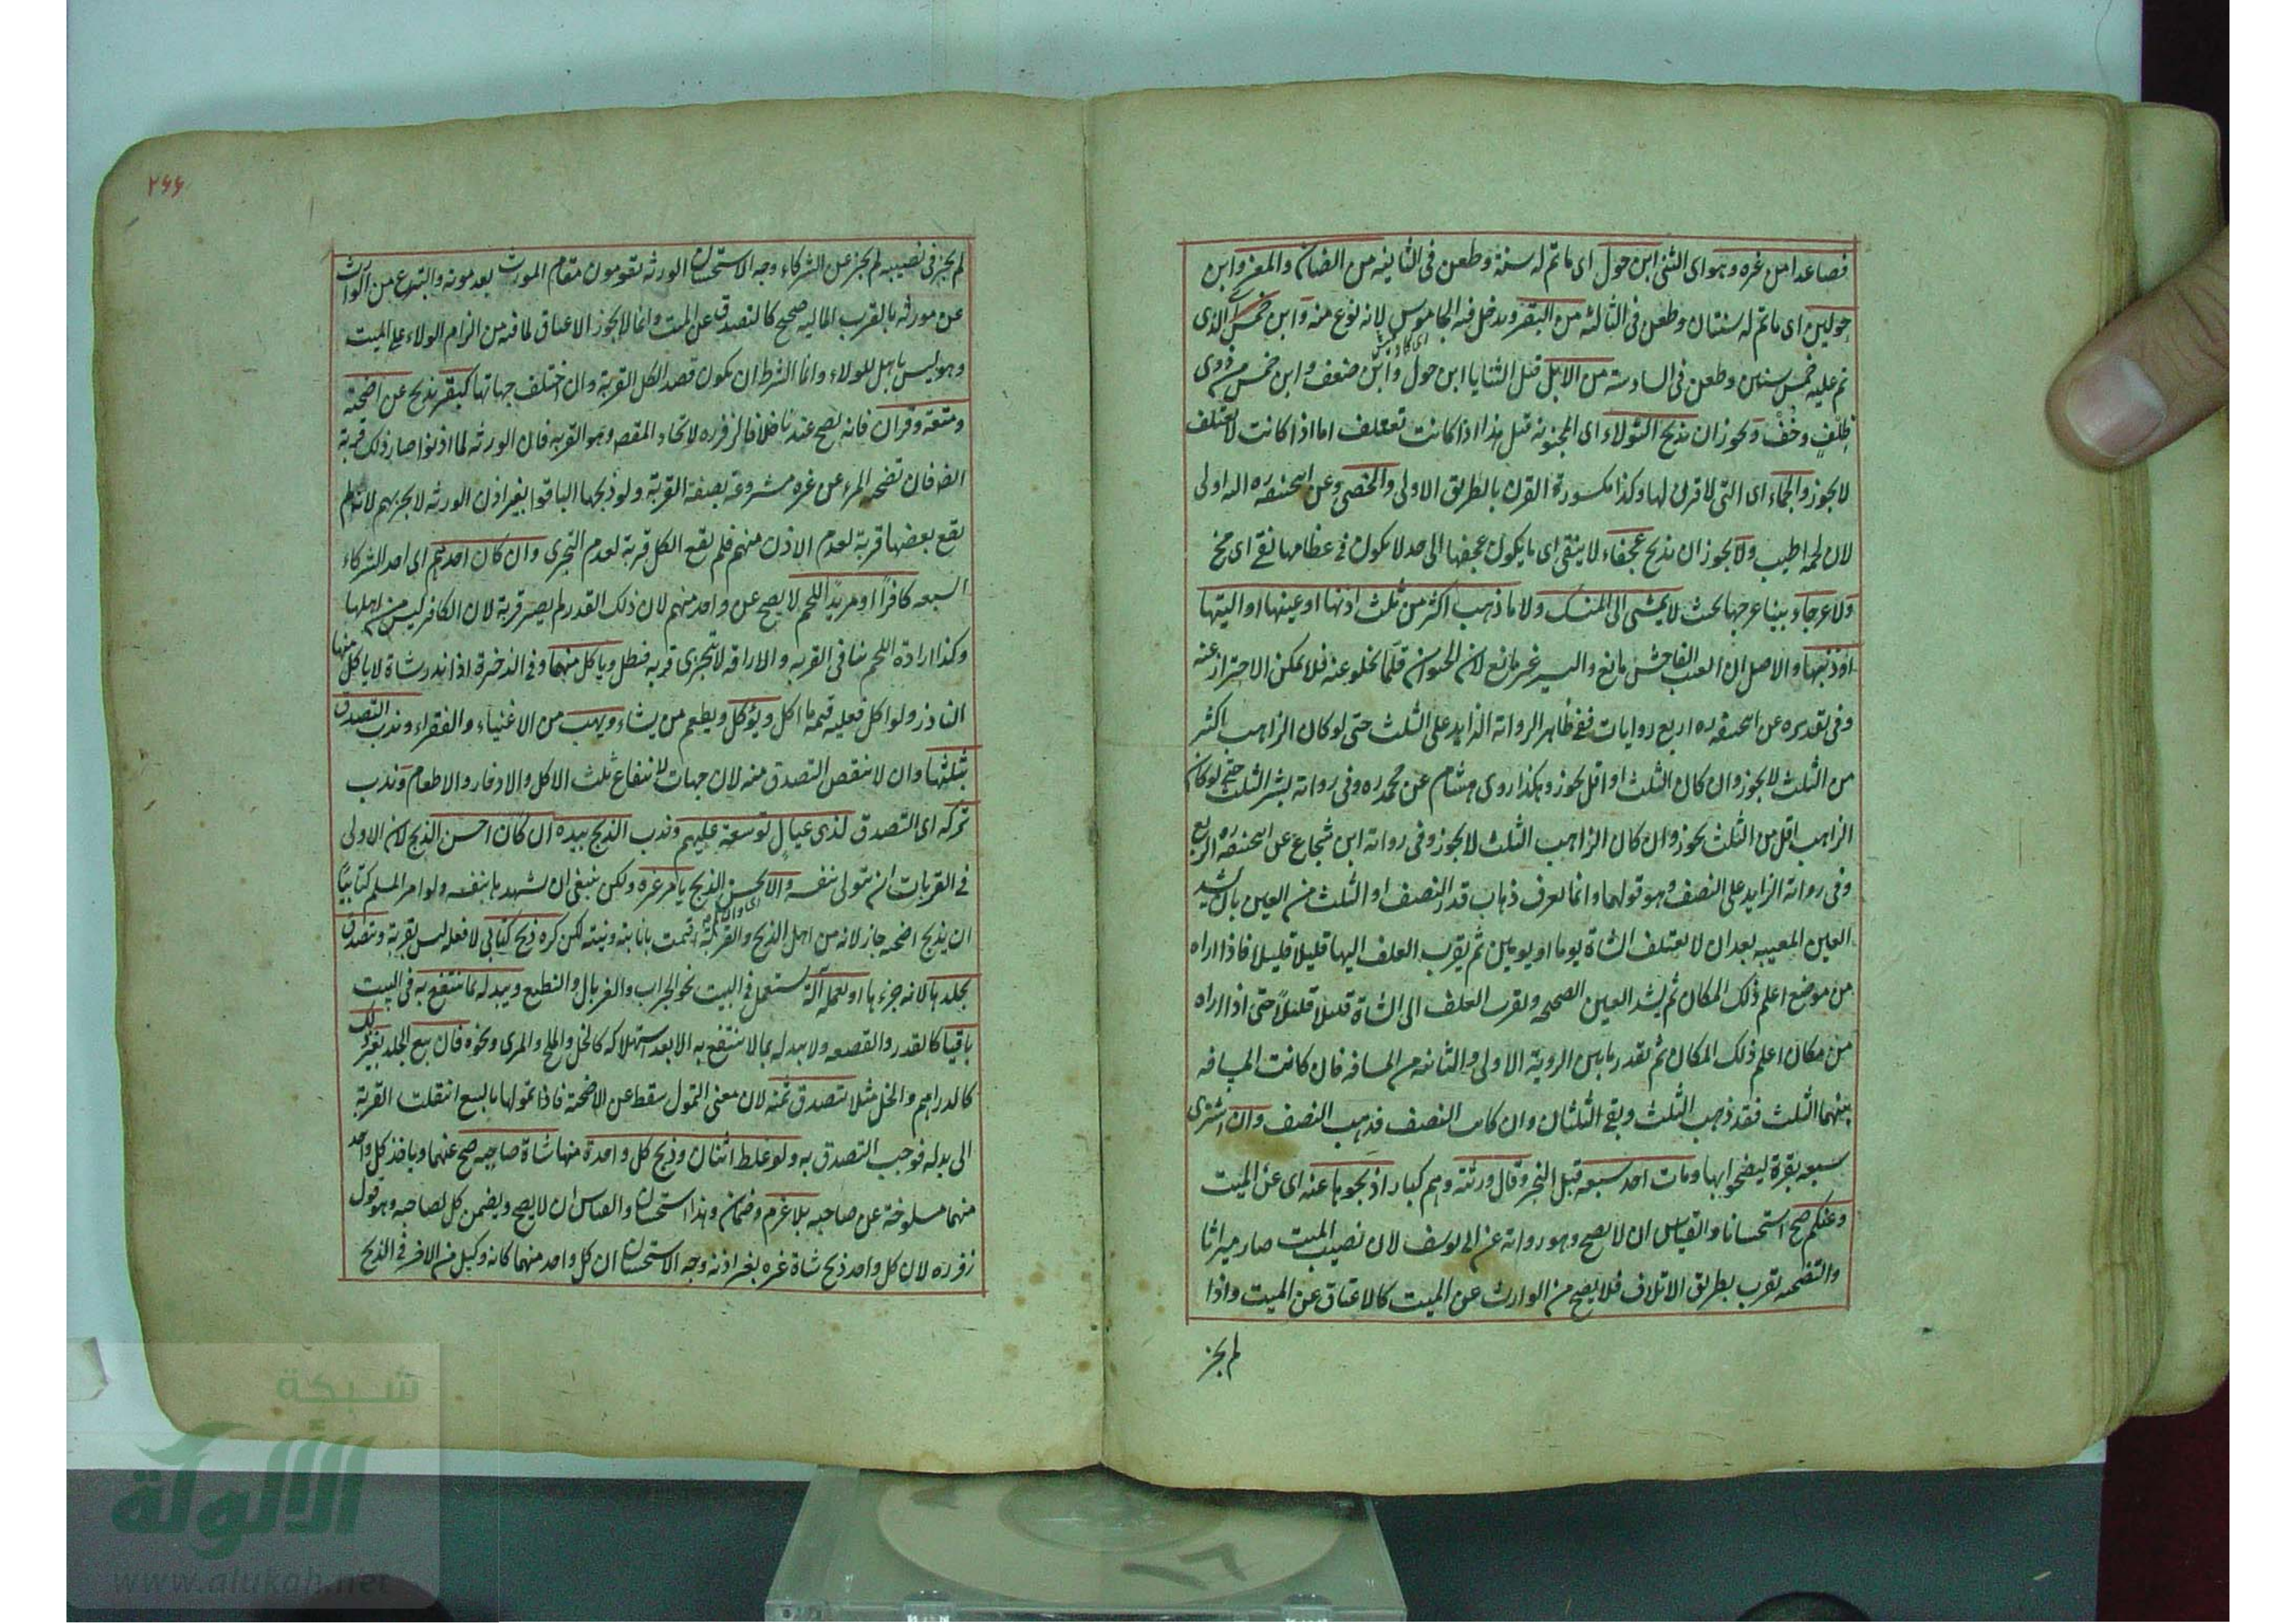 فصاعدا من غيره وهو اى الثنى ابن حول اى ما تم له سنة وطعن فى الثانية من الضان والمعز وابن
حولين اى ما تم له سنتان وطعن فى الثالثة من البقر ويدخل فيه الجاموس لانه نوع منه وابن خمس الذى
تم عليه خمس سنين وطعن فى السادسة من الابل قيل الثنايا ابن حول وابن ضعف وابن خمس من ذوى
ظِلْفٍ وخُفٍّ ويجوز ان يذبح الثولاء اى المجنونة قيل هذا اذا كانت تعتلف اما اذا كانت لا تعتلف
لا يجوز والجماء اى التى لا قرن لها وكذا مكسورة القرن بالطريق الاولى والخصى وعن ابيحنيفه ره انه اولى
لان لحمه اطيب ولا يجوز ان يذبح عجفاء لا ينقى اى ما يكون عجفها الى حد لا يكون فى عظامها نقى اى مخ
ولا عرجاء بينا عرجها بحيث لا يمشى الى المنسك ولا ما ذهب اكثر من ثلث اذنها او عينها او اليتها
او ذنبها والاصل ان العيب الفاحش مانع واليسير غير مانع لان الحيوان قلّما يخلو عنه فلا يمكن الاحتراز عنه
وفى تقديره عن ابيحنيفه ره اربع روايات ففى ظاهر الرواية الزايد على الثلث حتى لو كان الذاهب اكثر
من الثلث لا يجوز وان كان الثلث او اقل يجوز وهكذا روى هشام عن محمد ره وفى رواية بشر الثلث حتى لو كان
الذاهب اقل من الثلث يجوز وان كان الذاهب الثلث لا يجوز وفى رواية ابن شجاع عن ابيحنيفه ره الربع
وفى رواية الزايد على النصف وهو قولهما وانما يعرف ذهاب قدر النصف او الثلث من العين بان يشد
العين المعيبه بعد ان لا تعتلف الشاة يوما او يومين ثم يقرب العلف اليها قليلا قليلا فاذا اراه
من موضع اعلم ذلك المكان ثم يشد العين الصحيحه ويقرب العلف الى الشاة قليلا قليلاً حتى اذا اراه
من مكان اعلم ذلك المكان ثم يقدر ما بين الروية الاولى والثانيه من المسافه فان كانت المسافه
بينهما الثلث فقد ذهب الثلث وبقى الثلثان وان كانت النصف فذهب النصف وان اشترى
سبعه بقرة ليضحوا بها ومات احد سبعه قبل النحر وقال ورثته وهم كبار اذبحوها عنه اى عن الميت
وعنكم صح استحسانا والقياس ان لا يصح وهو رواية عن ابى يوسف لان نصيب الميت صار ميراثا
والتضحيه تقرب بطريق الاتلاف فلا يصح من الوارث عن الميت كالاعتاق عن الميت واذا
لم يجز
٢٦٦
لم يجز فى نصيبه لم يجز عن الشركاء وجه الاستحسان الورثه يقومون مقام المورث بعد موته والتبرع من الوارث
عن مورثه بالقرب الماليه صحيح كالتصدق عن الميت وانما لا يجوز الاعتاق لما فيه من الزام الولاء على الميت
وهو ليس باهل للولاء وانما الشرط ان يكون قصد الكل القربة وان اختلف جهاتها كبقر يذبح عن اضحيه
ومتعة وقران فانه يصح عندنا خلافا لزفر ره لاتحاد المقصد وهو القربه فان الورثه لما اذنوا صار ذلك قربة
ايضا فان تضحيه المرء عن غيره مشروعة بصفة القربة ولو ذبحها الباقوا بغير اذن الورثه لا يجزيهم لانه لم
يقع بعضها قربة لعدم الاذن منهم فلم يقع الكل قربة لعدم التجزى وان كان احدهم اى احد الشركاء
السبعه كافراً او مريد اللحم لا يصح عن واحد منهم لان ذلك القدر لم يصر قربة لان الكافر ليس من اهلها
وكذا ارادة اللحم ينافى القربه والاراقه لا تتجزى قربه فبطل وياكل منهما وفى الذخيرة اذا نذر شاة لا ياكل منها
الناذر ولو اكل فعليه قيمة ما اكل ويؤكل ويطعم من يشاء ويهب من الاغنياء والفقراء وندب التصدق
بثلثها وان لا ينقص التصدق منه لان جهات الانتفاع ثلث الاكل والادخار والاطعام وندب
تركه اى التصدق لذى عيال توسعة عليهم وندب الذبح بيده ان كان احسن الذبح لان الاولى
فى القربات ان يتولى بنفسه والا يحسن الذبح يامر غيره ولكن ينبغى ان يشهدها بنفسه ولو امر المسلم كتابيّا
ان يذبح اضحيه جاز لانه من اهل الذبح والقربة اقيمت بانابته ونيته لكن كره ذبح كتابى لا فعله ليس بقربة ويتصدق
بجلدها لانه جزءها او يعمله آلة يستعمل فى البيت نحو الجراب والغربال والنطع ويبدله بما ينتفع به فى البيت
باقيا كالقدر والقصعه ولا يبدله بما لا ينتفع به الا بعد استهلاكه كالخل والملح والمرى ونحوه فان بيع الجلد بغير ذلك
كالدراهم والخل مثلا يتصدق ثمنه لان معنى التمول سقط عن الاضحية فاذا تمولها بالبيع انتقلت القربة
الى بدله فوجب التصدق به ولو غلط اثنان وذبح كل واحدة منها شاة صاحبه صح عنهما وياخذ كل واحد
منهما مسلوخة عن صاحبه بلا غرم وضمان وهذا استحسان والقياس ان لا يصح ويضمن كل لصاحبه وهو قول
زفر ره لان كل واحد ذبح شاة غيره بغير اذنه وجه الاستحسان ان كل واحد منهما كانه وكيل من الاخر فى الذبح
شبكة
الألولة
www.alukah.net